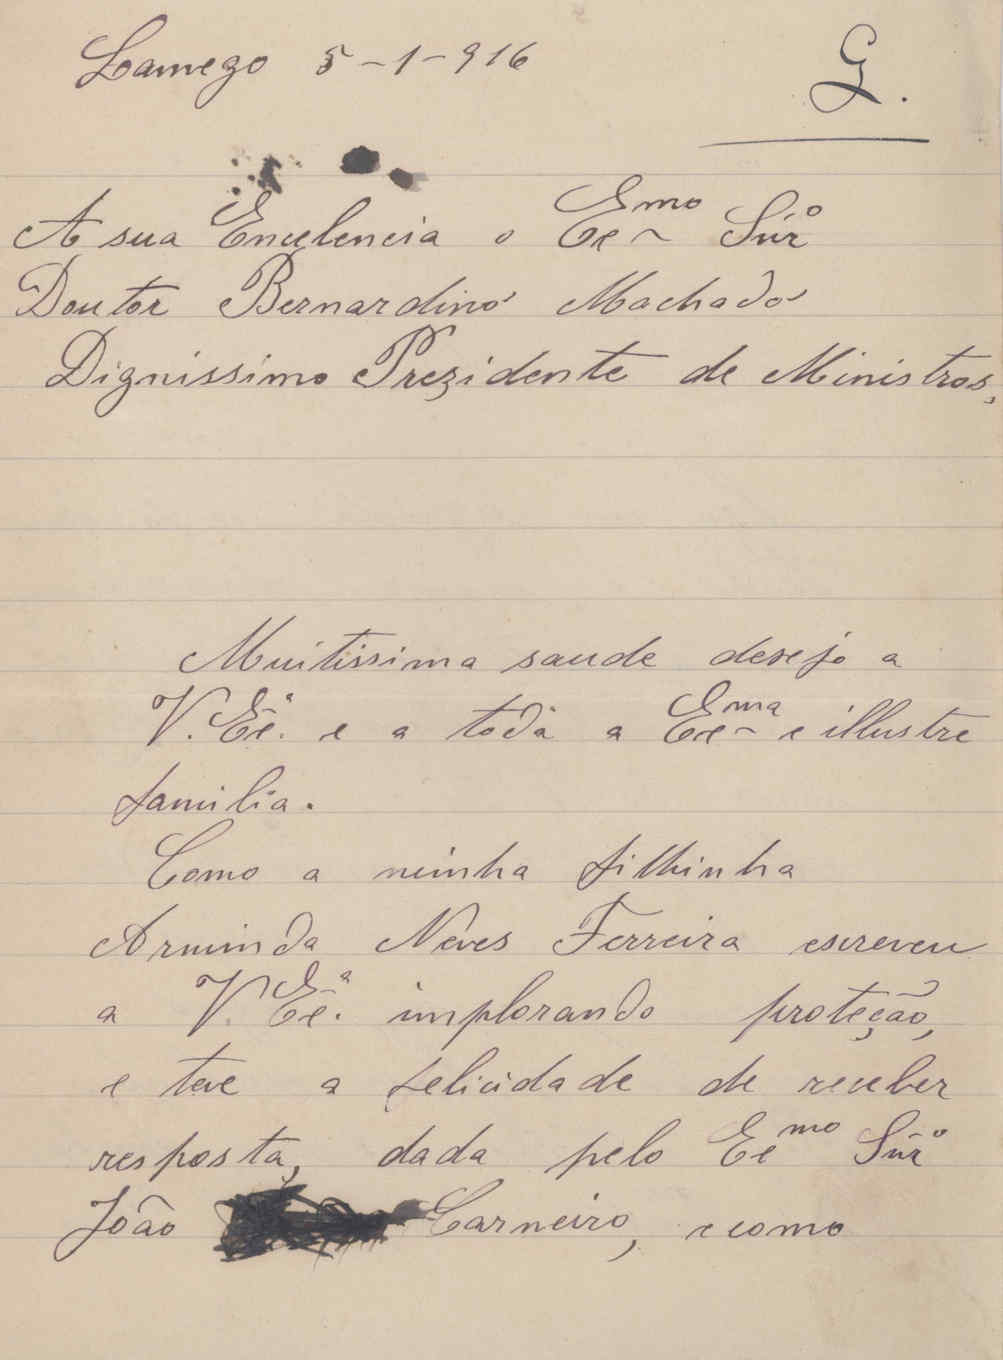 Lamego 5-1-916
G.
A sua Encelencia o Ee^mo Snr^o
Doutor Bernardino Machado
Dignissimo Prezidente de Ministros,
Muitissima saude desejo a
V. Eê.ª e a toda a Ee^ma e illustre
familia.
Como a minha filhinha
Arminda Neves Ferreira escreveu
a V. Eê.ª implorando proteção,
e teve a felicidade de receber
resposta, dada pelo Ee^mo Snr^o
João Carneiro, e como